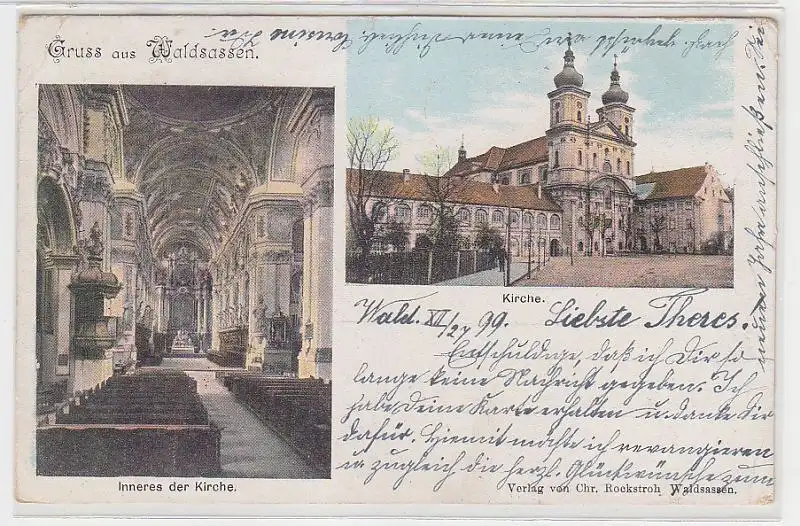 Gruss aus Waldsassen.
Kirche.
Wald. XII/27 99. Liebste Theres.
Entschuldige, daß ich Dir so
lange keine Nachricht gegeben. Ich
habe Deine Karte erhalten u. danke Dir
dafür. Hiemit möchte ich revangieren
u. zugleich die herzl. Glückwünsche zum
neuen Jahre anschließen.
Inneres der Kirche.
Verlag von Chr. Rockstroh, Waldsassen.